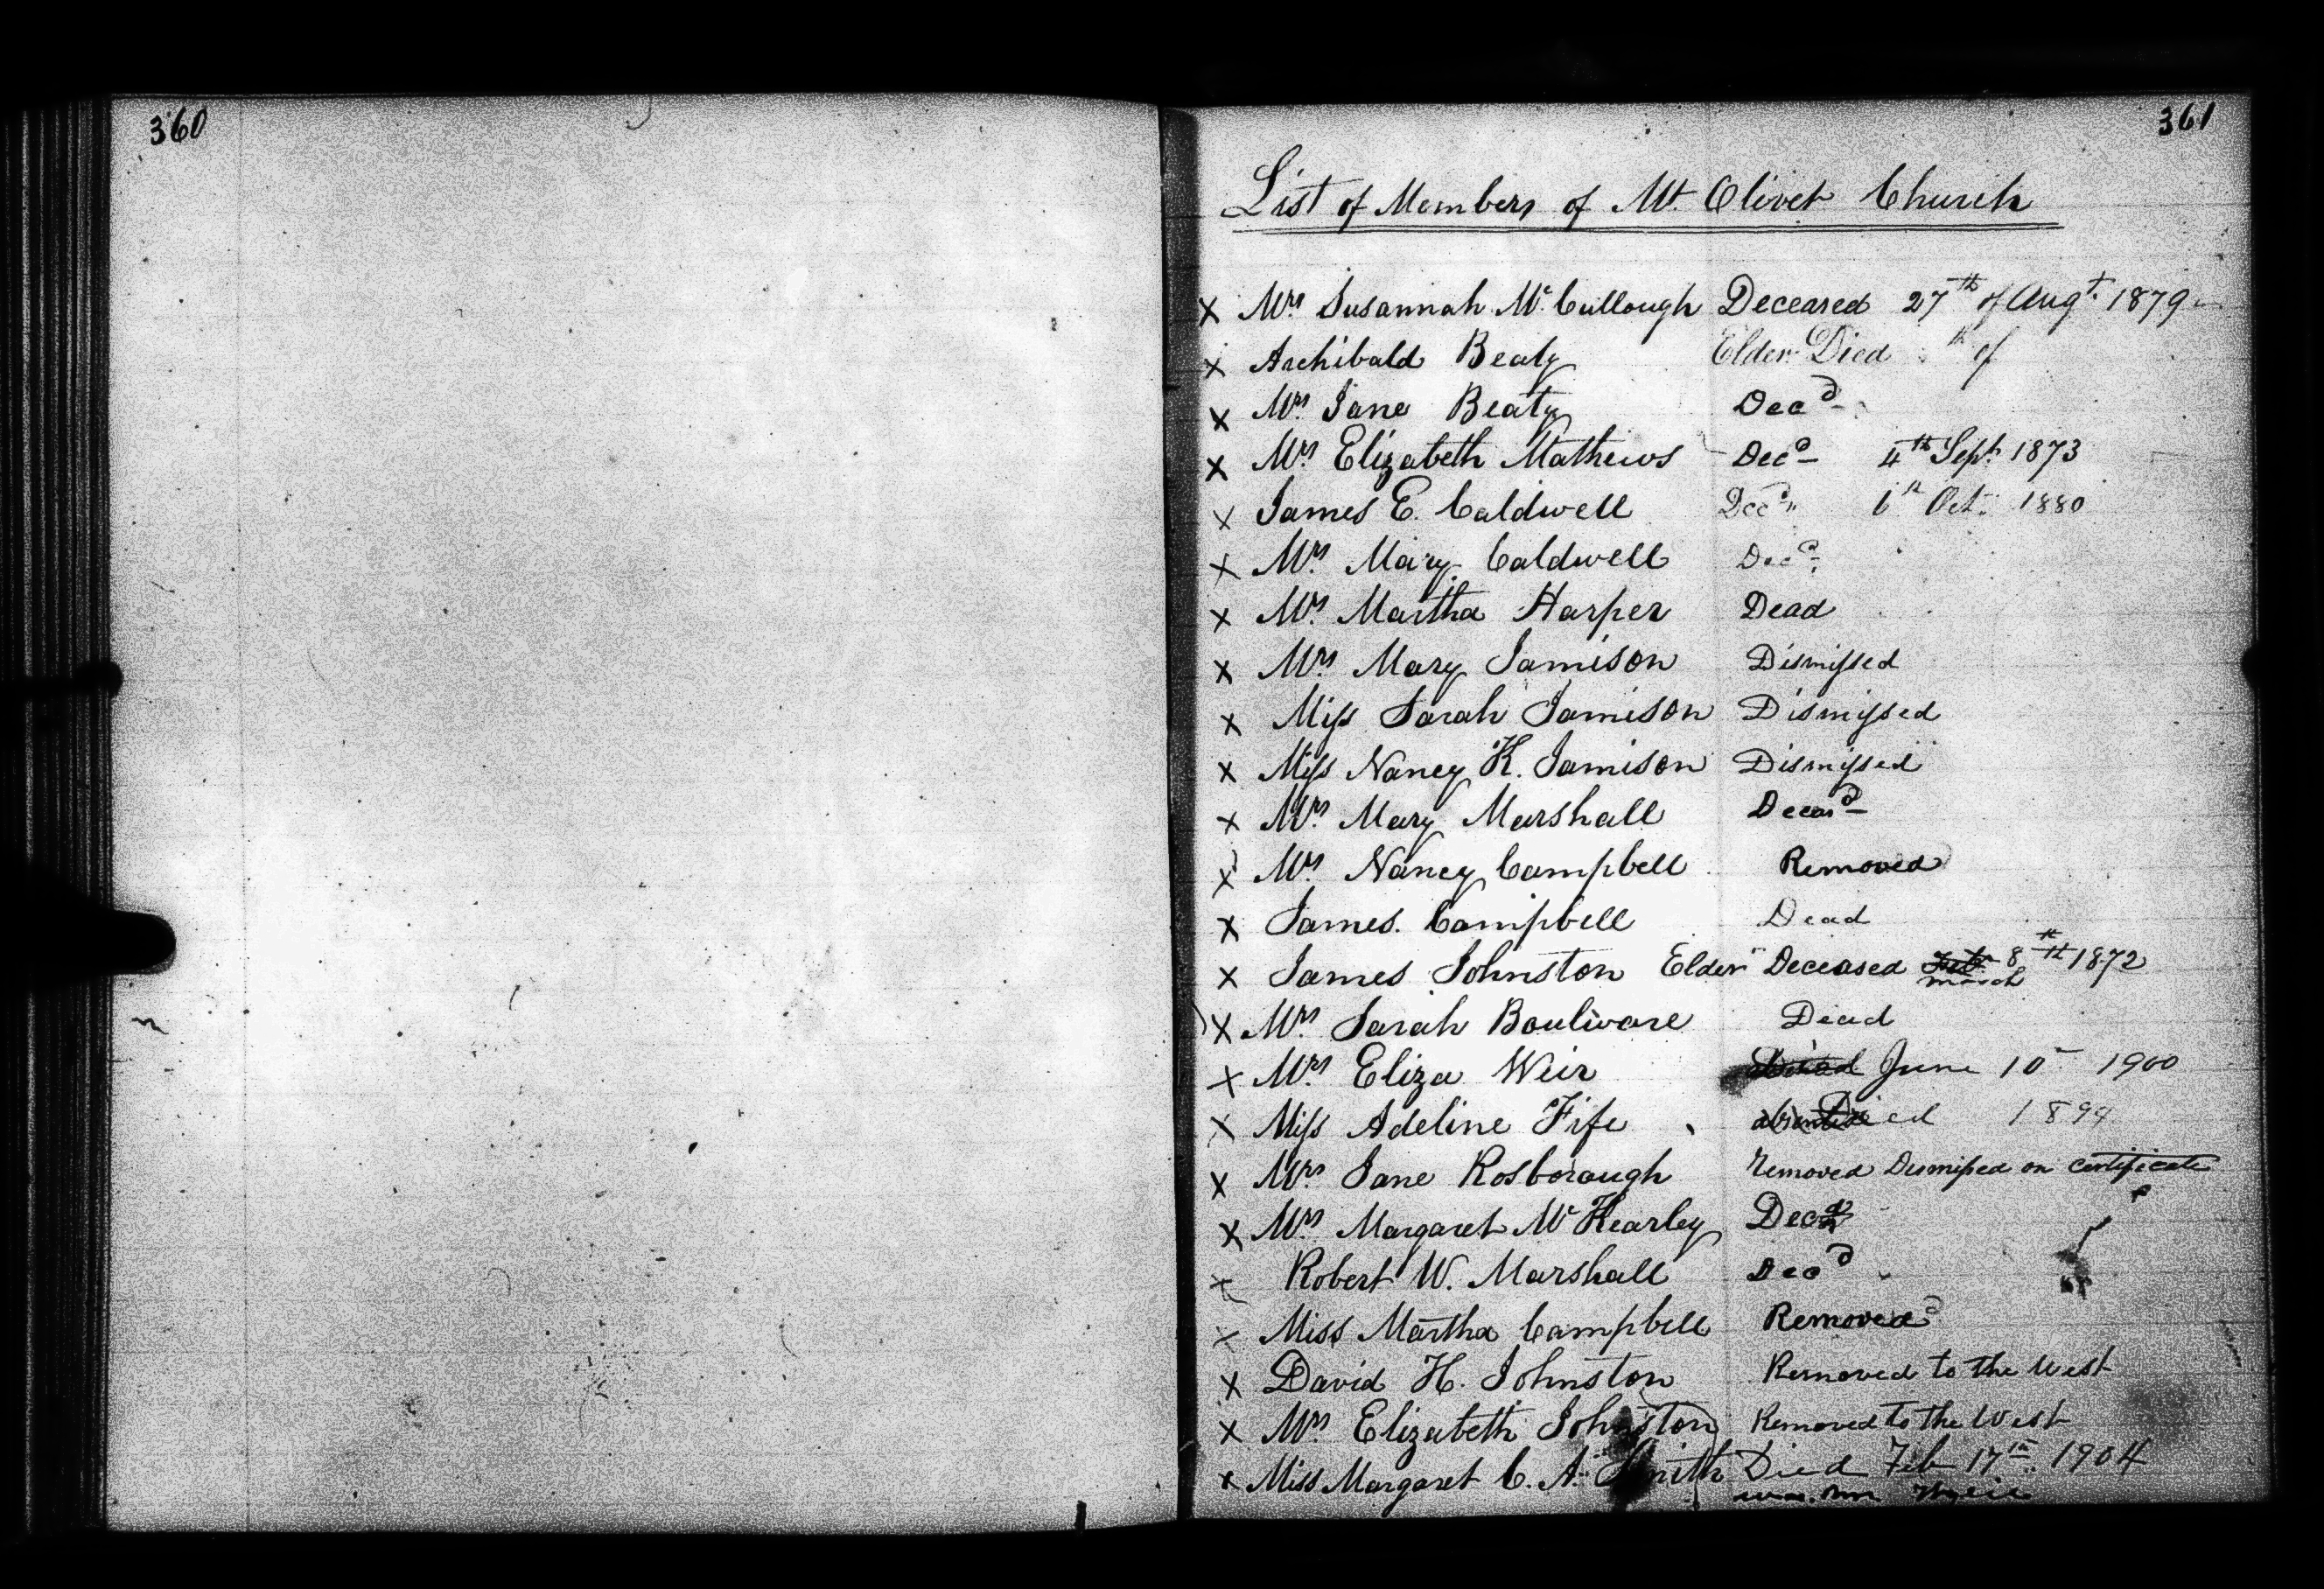 360
361
List of Members of Mt. Olivet Church
x Mrs Susannah McCullough Deceased 27th of Augt. 1879
x Archibald Beaty Elder Died th of
x Mrs Jane Beaty Decd
x Mrs Elizabeth Mathews Decd 4th Sept. 1873
x James E. Caldwell Decd 6th Oct. 1880
x Mrs Mary Caldwell Decd
x Mrs Martha Harper Dead
x Mrs Mary Jamison Dismissed
x Miss Sarah Jamison Dismissed
x Miss Nancy K. Jamison Dismissed
x Mrs Mary Marshall Deceasd
x Mrs Nancy Campbell Removed
x James Campbell Dead
x James Johnston Elder Deceased Feb 8th 1872
march
x Mrs Sarah Bouliware Dead
x Mrs Eliza Weir Died June 10 1900
x Miss Adeline Fife Died 1899
x Mrs Jane Rosborough removed Dismissed on certificate
x Mrs Margaret McKearley Decd
x Robert W. Marshall Decd
x Miss Martha Campbell Removed
x David H. Johnston Removed to the West
x Mrs Elizabeth Johnston Removed to the West
x Miss Margaret C. A. Smith Died Feb 17th 1904